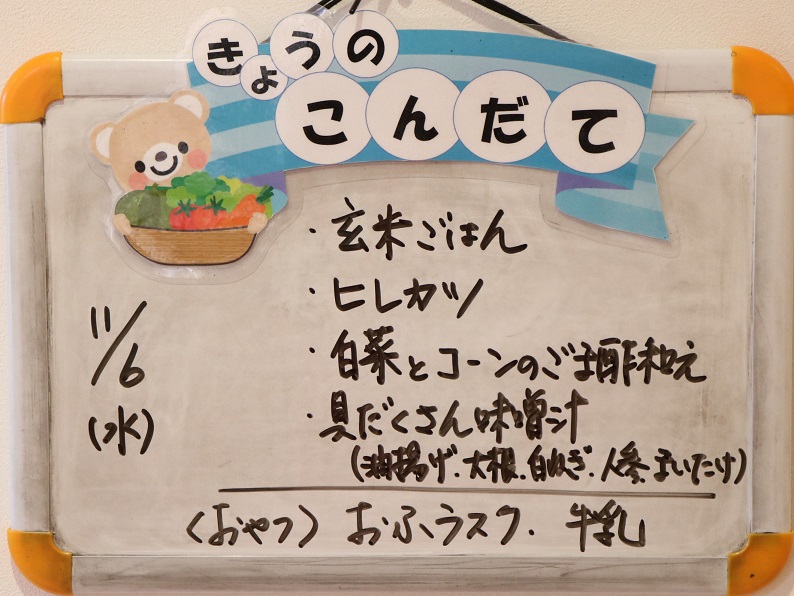 きょうの
こんだて
11/6
(水)
・玄米ごはん
・ヒレカツ
・白菜とコーンのごま酢和え
・具だくさん味噌汁
(油揚げ、大根、白ねぎ、人参、まいたけ)
〈おやつ〉おふラスク、牛乳